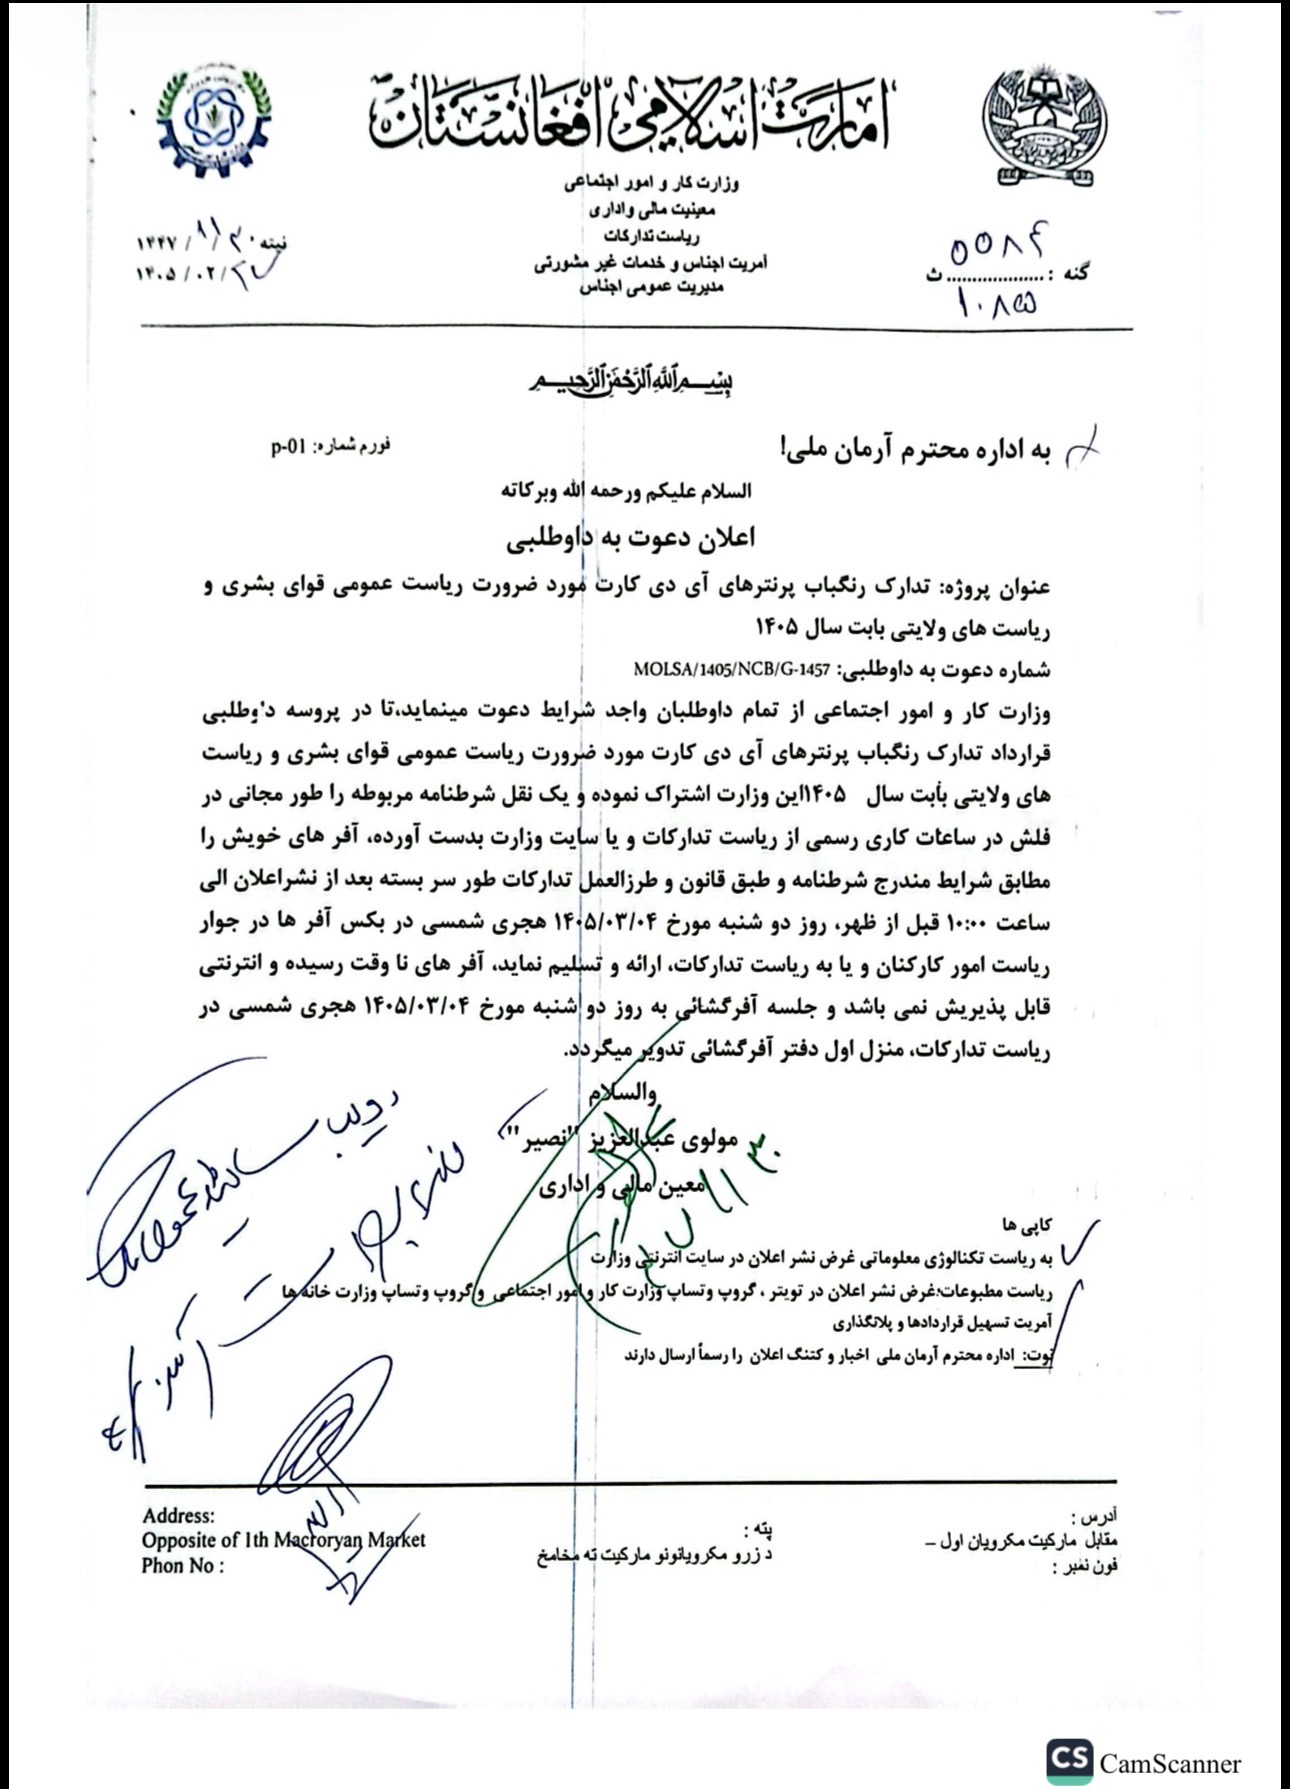 امارت اسلامی افغانستان
وزارت کار و امور اجتماعی
معینیت مالی واداری
ریاست تدارکات
آمریت اجناس و خدمات غیر مشورتی
مدیریت عمومی اجناس
نیته ۳۰/ ۱۱/ ۱۴۴۷
۱۴۰۵/۰۲/
گنه : ................... ث
۵۵۸۴
۱۰۸۵
بسم الله الرحمن الرحیم
به اداره محترم آرمان ملی!
فورم شماره: p-01
السلام علیکم ورحمه الله وبرکاته
اعلان دعوت به داوطلبی
عنوان پروژه: تدارک رنگباب پرنترهای آی دی کارت مورد ضرورت ریاست عمومی قوای بشری و
ریاست های ولایتی بابت سال ۱۴۰۵
شماره دعوت به داوطلبی: MOLSA/1405/NCB/G-1457
وزارت کار و امور اجتماعی از تمام داوطلبان واجد شرایط دعوت مینماید،تا در پروسه داوطلبی
قرارداد تدارک رنگباب پرنترهای آی دی کارت مورد ضرورت ریاست عمومی قوای بشری و ریاست
های ولایتی بابت سال ۱۴۰۵این وزارت اشتراک نموده و یک نقل شرطنامه مربوطه را طور مجانی در
فلش در ساعات کاری رسمی از ریاست تدارکات و یا سایت وزارت بدست آورده، آفر های خویش را
مطابق شرایط مندرج شرطنامه و طبق قانون و طرزالعمل تدارکات طور سر بسته بعد از نشراعلان الی
ساعت ۱۰:۰۰ قبل از ظهر، روز دو شنبه مورخ ۱۴۰۵/۰۳/۰۴ هجری شمسی در بکس آفر ها در جوار
ریاست امور کارکنان و یا به ریاست تدارکات، ارائه و تسلیم نماید، آفر های نا وقت رسیده و انترنتی
قابل پذیریش نمی باشد و جلسه آفرگشائی به روز دو شنبه مورخ ۱۴۰۵/۰۳/۰۴ هجری شمسی در
ریاست تدارکات، منزل اول دفتر آفرگشائی تدویر میگردد.
والسلام
مولوی عبدالعزیز "نصیر"
معین مالی و اداری
کاپی ها
به ریاست تکنالوژی معلوماتی غرض نشر اعلان در سایت انترنتی وزارت
ریاست مطبوعات؛غرض نشر اعلان در تویتر ، گروپ وتساپ وزارت کار و امور اجتماعی و گروپ وتساپ وزارت خانه ها
آمریت تسهیل قراردادها و پلانگذاری
نوت: اداره محترم آرمان ملی اخبار و کتنگ اعلان را رسماً ارسال دارند
آدرس :
مقابل مارکیت مکرویان اول –
فون نمبر :
پته :
د زرو مکرویانونو مارکیت ته مخامخ
Address:
Opposite of 1th Macroryan Market
Phon No :
CS CamScanner